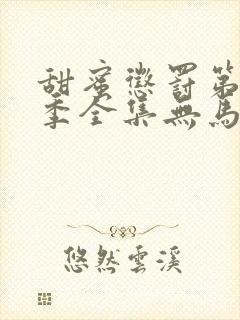 甜蜜懲罰第
季全集無馬
悠然雲溪